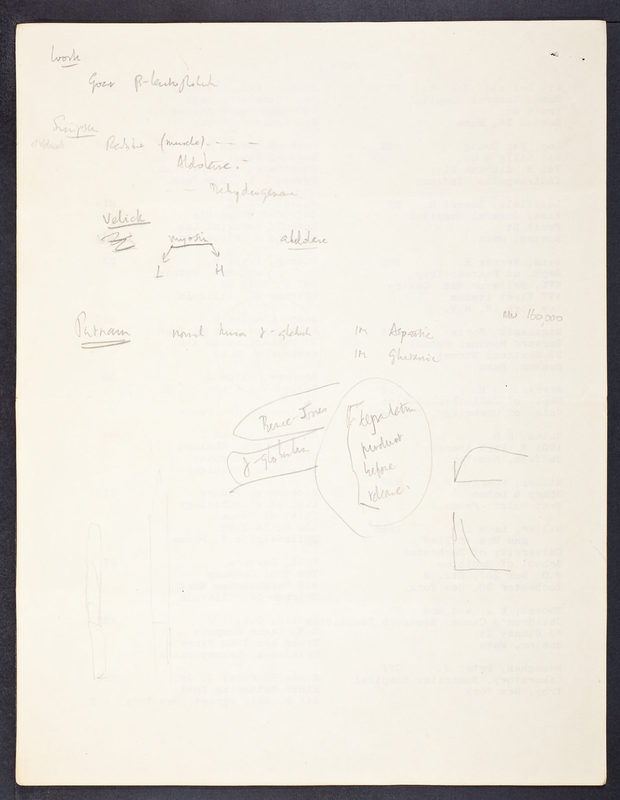 Work
Goat β-lactoglobulin
Simpson
Rabbit (muscle) - - - -
Aldolase -
- - Dehydrogenase
Velick
myosin aldolase
L H
MW 160,000
Putnam normal human γ-globulin 1M Aspartic
1M Glutamic
Bence-Jones
γ-globulin
degradation
product
before
release?